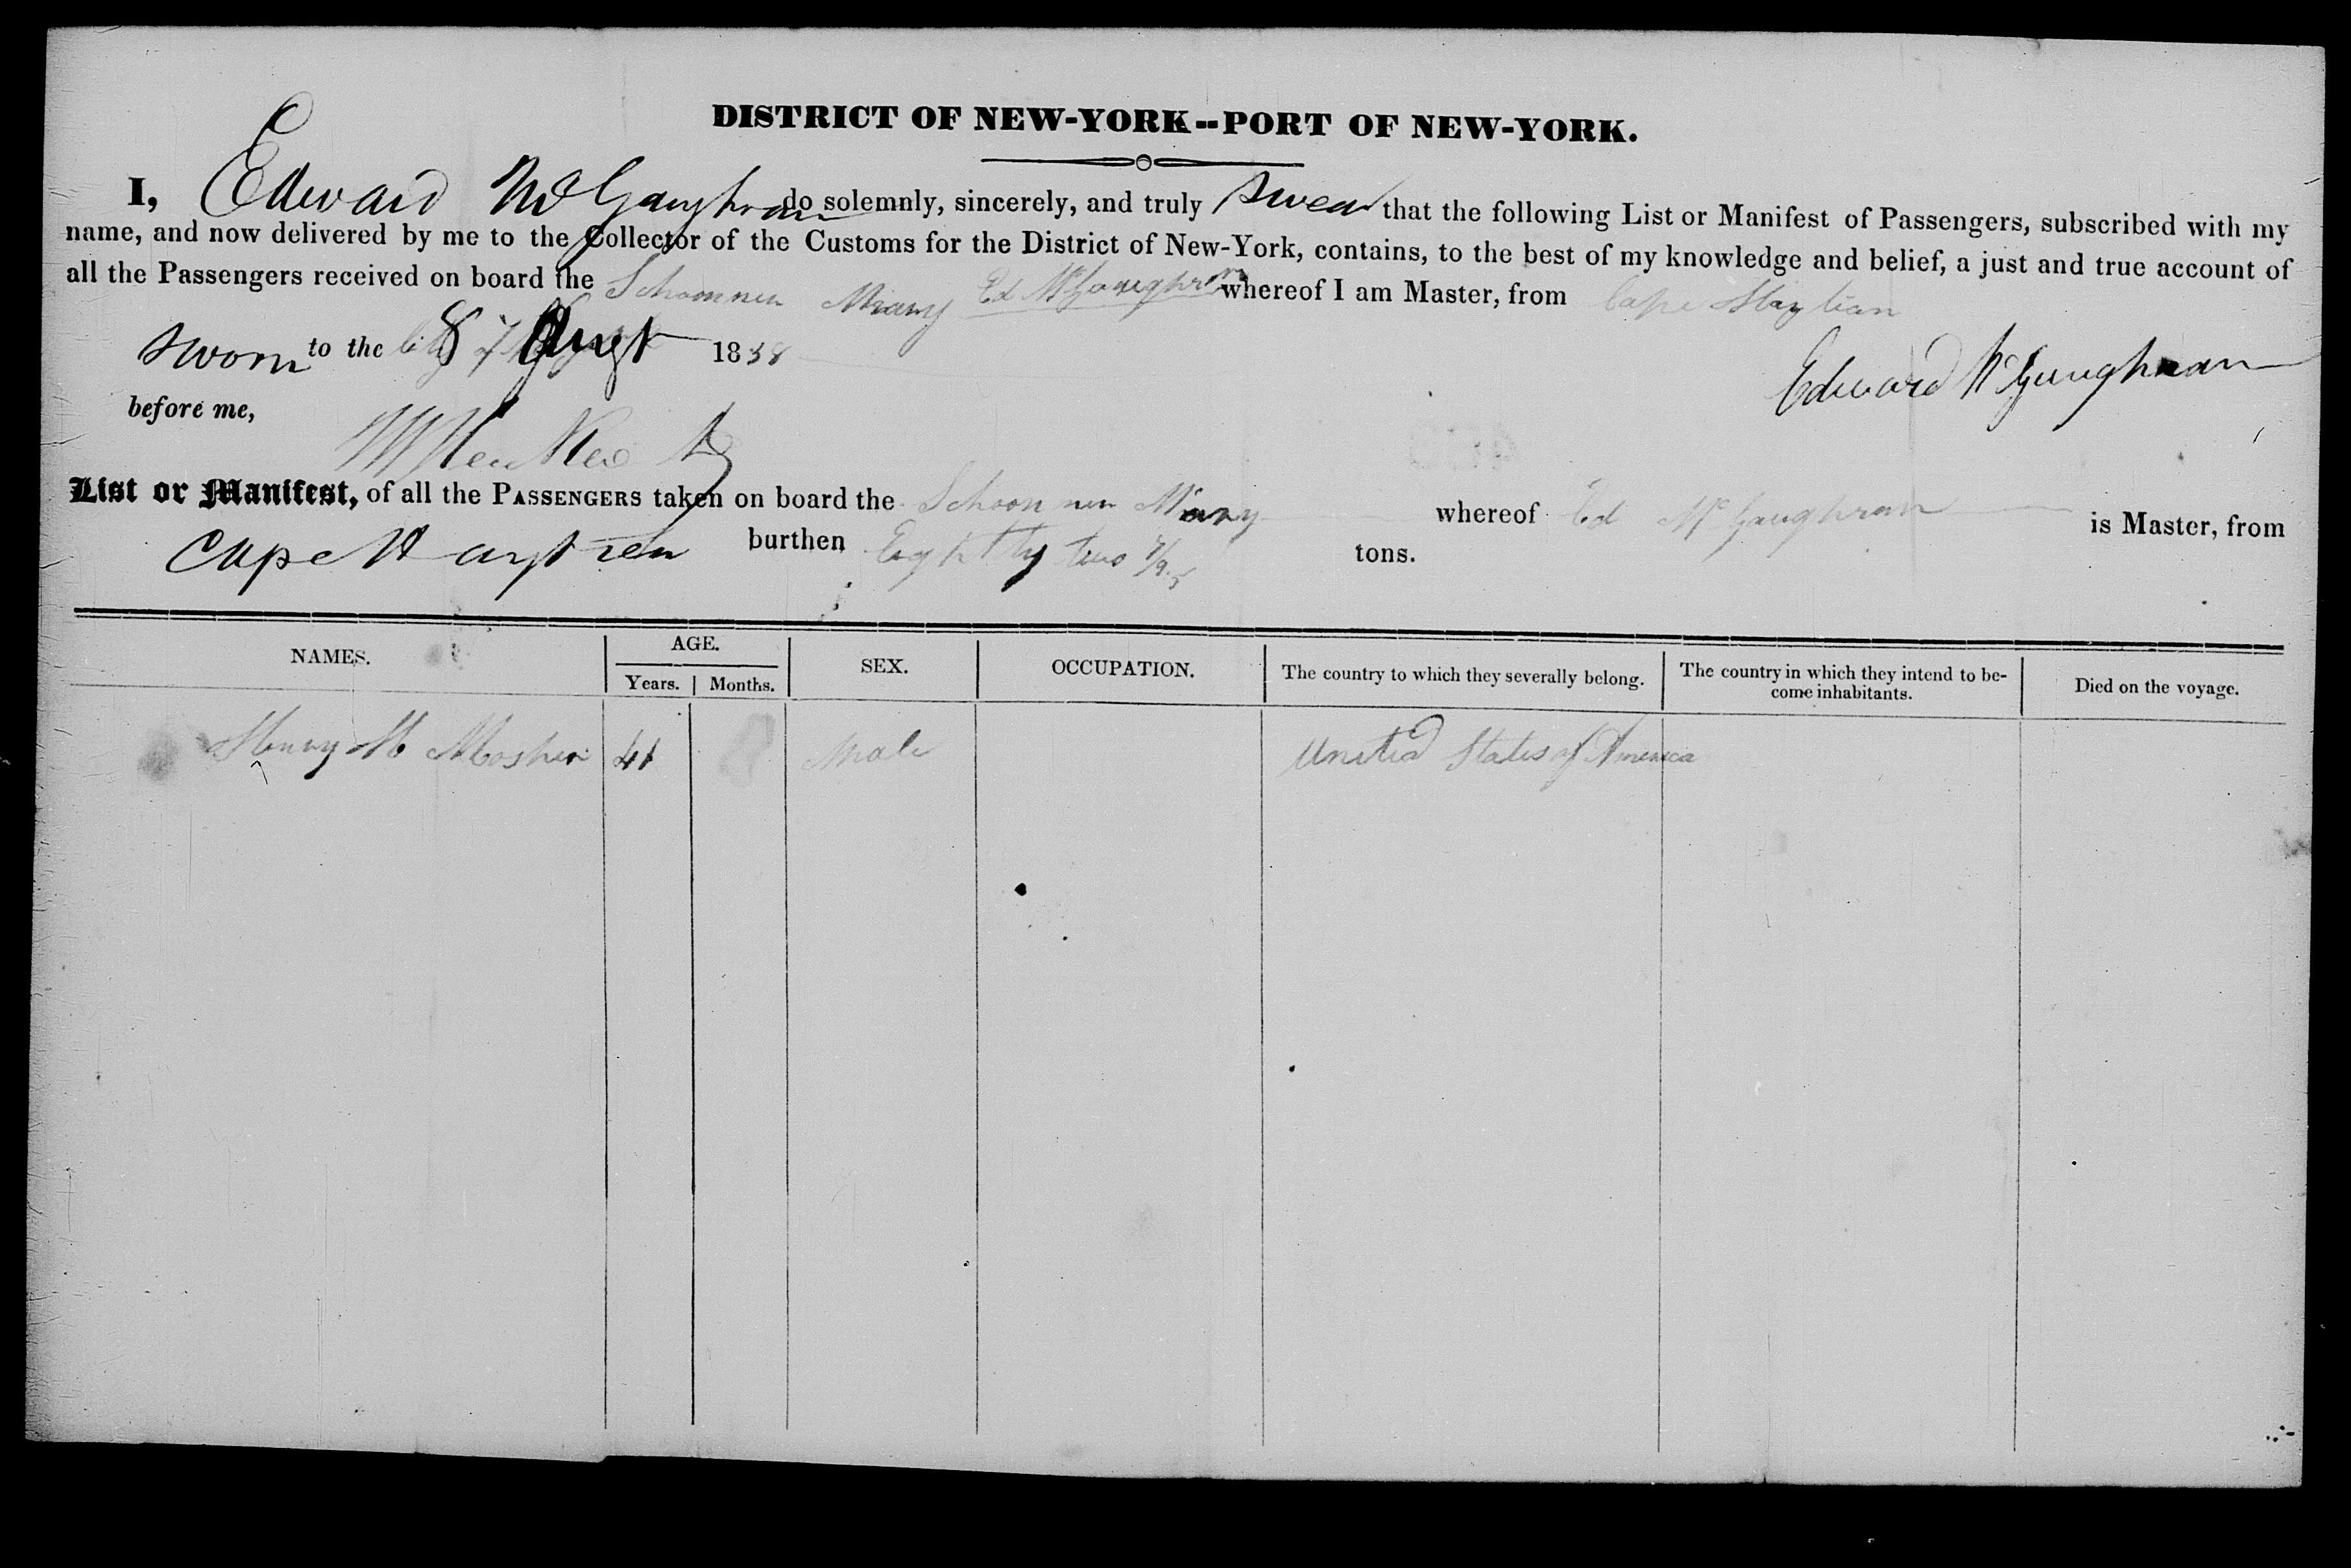 DISTRICT OF NEW-YORK--PORT OF NEW-YORK.
I, Edward McGaughran do solemnly, sincerely, and truly swear that the following List or Manifest of Passengers, subscribed with my
name, and now delivered by me to the Collector of the Customs for the District of New-York, contains, to the best of my knowledge and belief, a just and true account of
all the Passengers received on board the Schooner Mary Ed McGaughran whereof I am Master, from Cape Haytian
sworn to the 8 Augt 1838
Edward McGaughran
before me,
List or Manifest, of all the PASSENGERS taken on board the Schooner Mary whereof Ed McGaughran is Master, from
Cape Haytien burthen Eightty two 7/95 tons.
NAMES. AGE. SEX. OCCUPATION. The country to which they severally belong. The country in which they intend to be- Died on the voyage.
Years. Months. come inhabitants.
Henry H Mosher 41 Male United States of America